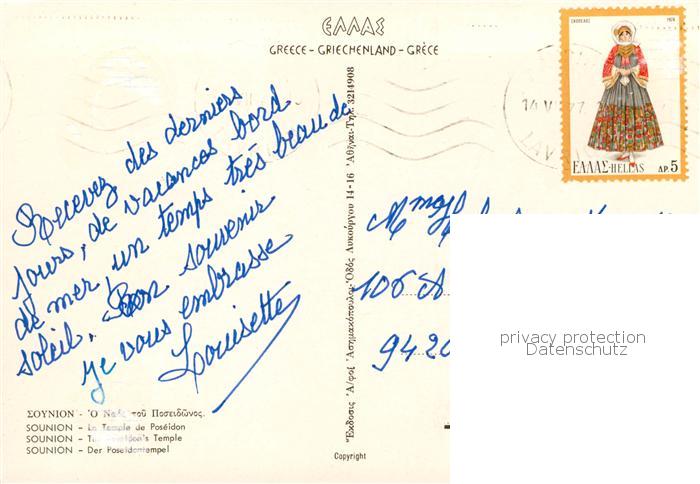 ΕΛΛΑΣ
GREECE - GRIECHENLAND - GRÈCE
ΣΚΟΠΕΛΟΣ 1974
ΕΛΛΑΣ-HELLAS ΔΡ. 5
Recevez des derniers
jours, de vacances bord
de mer, un temps très beau de
soleil. Bon souvenir
je vous embrasse
Louisette
ΣΟΥΝΙΟΝ - Ὁ Ναὸς τοῦ Ποσειδῶνος.
SOUNION - Le Temple de Poséidon
SOUNION - The Poseidon's Temple
SOUNION - Der Poseidontempel
Ἔκδοσις Ἀ/φοί Ἀσημακόπουλοι-Ὁδός Λυκούργου 14-16 Ἀθῆναι-Τηλ. 3214908
Copyright
106 A
9420
privacy protection
Datenschutz